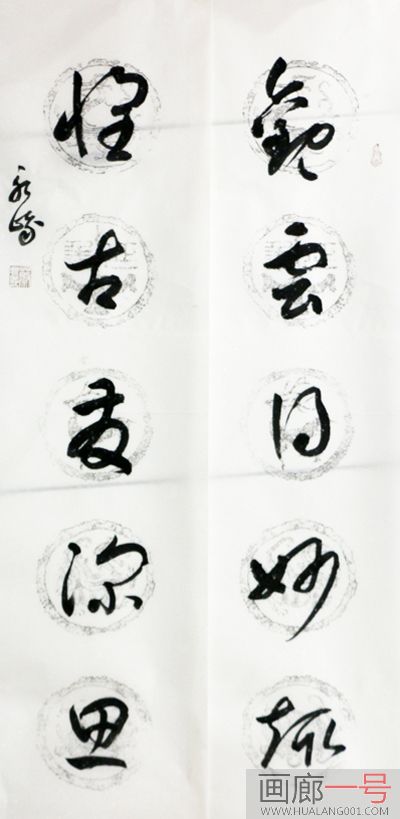 觀雲得妙趣
懷古發深思
画廊一号
WWW.HUALANG001.COM